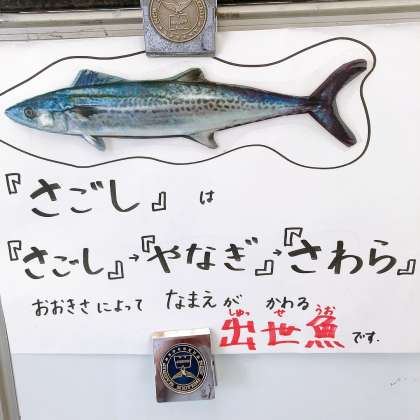 『さごし』は
『さごし』→『やなぎ』→『さわら』
おおきさによって なまえが かわる
しゅっ せ うお
出世魚です.